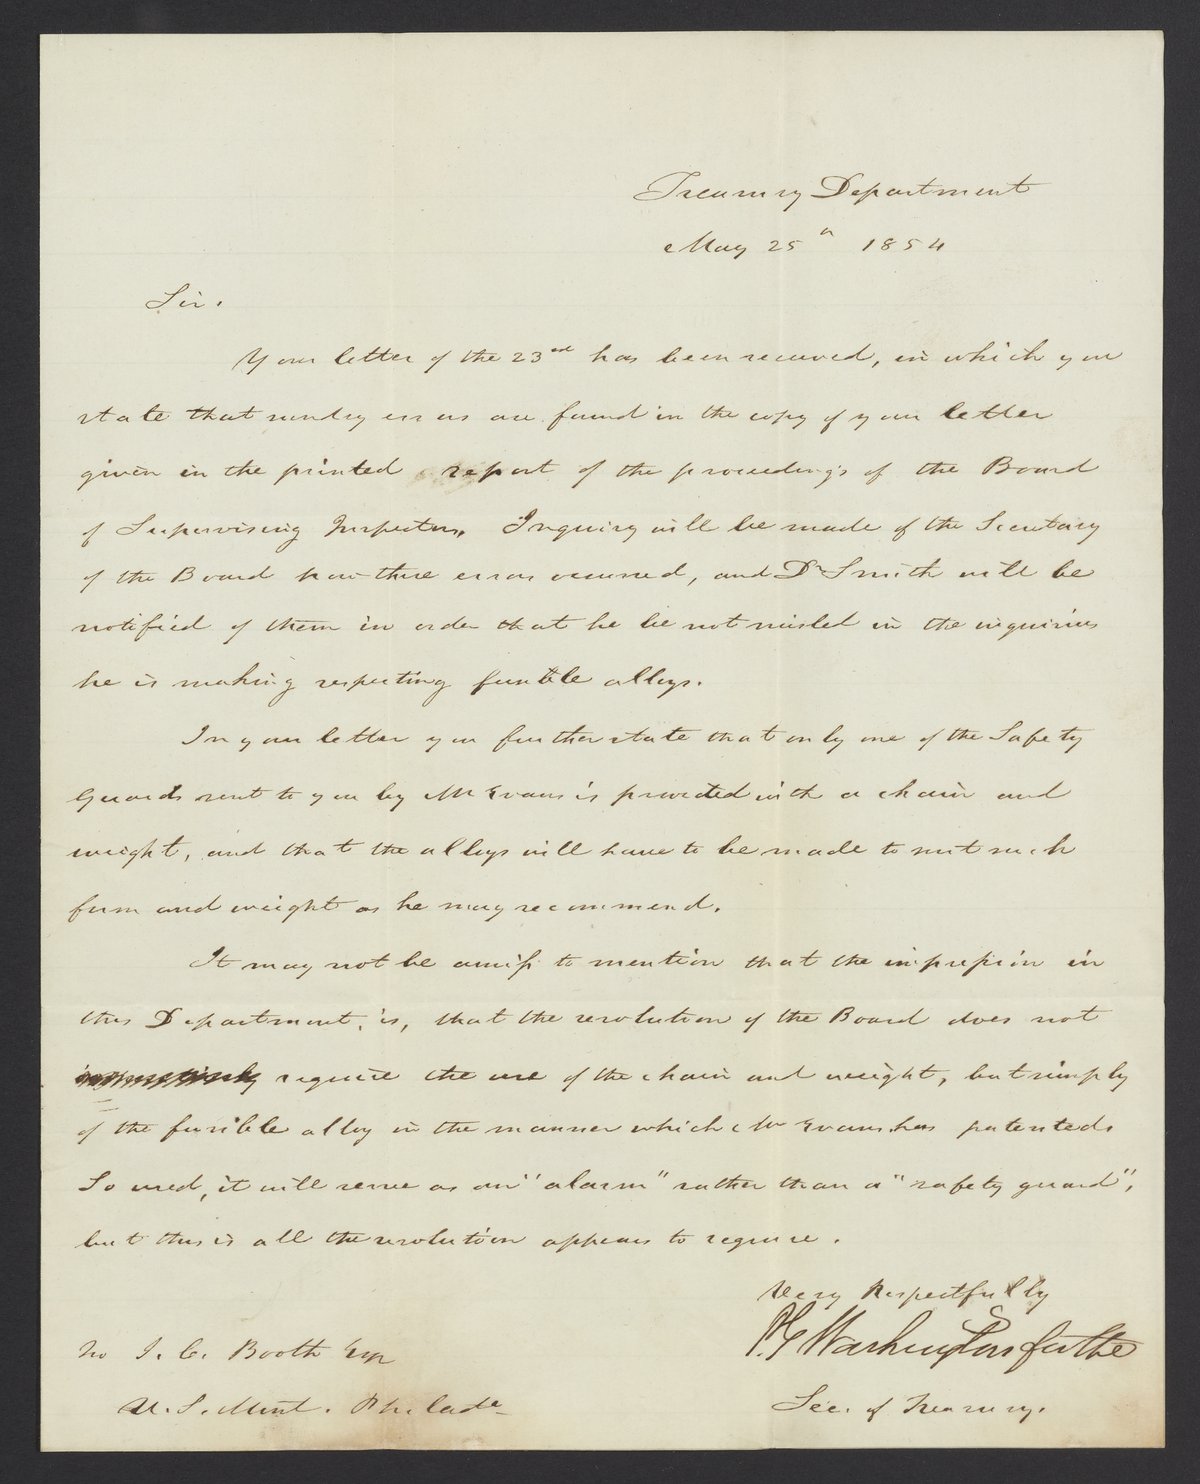 Treasury Department
May 25th 1854
Sir.
Your letter of the 23rd has been received, in which you
state that sundry errors are found in the copy of your letter
given in the printed report of the proceedings of the Board
of Supervising Inspectors. Inquiry will be made of the Secretary
of the Board how these errors occurred, and Dr Smith will be
notified of them in order that he be not misled in the inquiries
he is making respecting fusible alloys.
In your letter you further state that only one of the Safety
Guards sent to you by Mr Evans is provided with a chain and
weight, and that the alloys will have to be made to suit such
form and weight as he may recommend.
It may not be amiss to mention that the impression in
this Department, is, that the resolution of the Board does not
require the use of the chain and weight, but simply
of the fusible alloy in the manner which Mr Evans has patented.
So used, it will serve as an "alarm" rather than a "safety guard",
but this is all the resolution appears to require.
Very Respectfully
P. G. Washington for the
Sec. of Treasury.
To J. C. Booth Esqr
U. S. Mint. Philada